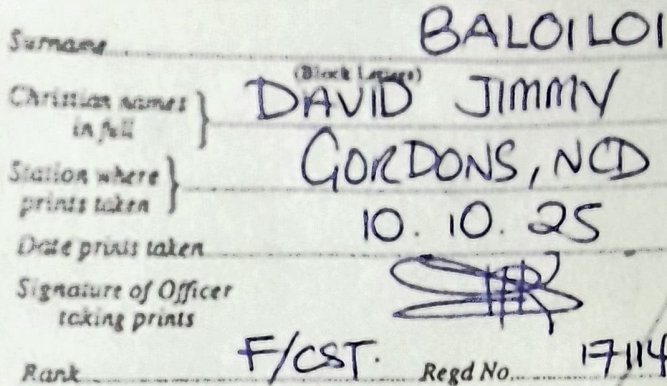 Surname BALOILOI
(Block Letters)
Christian names in full } DAVID JIMMY
Station where prints taken } GORDONS, NCD
Date prints taken 10.10.25
Signature of Officer taking prints
Rank F/CST. Regd No. 17114